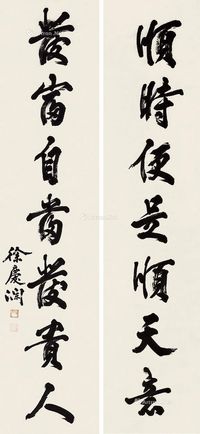 順時便是順天意
發富自當發貴人
徐慶瀾